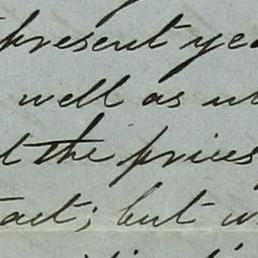 present yea
well as
the prices
tact; but